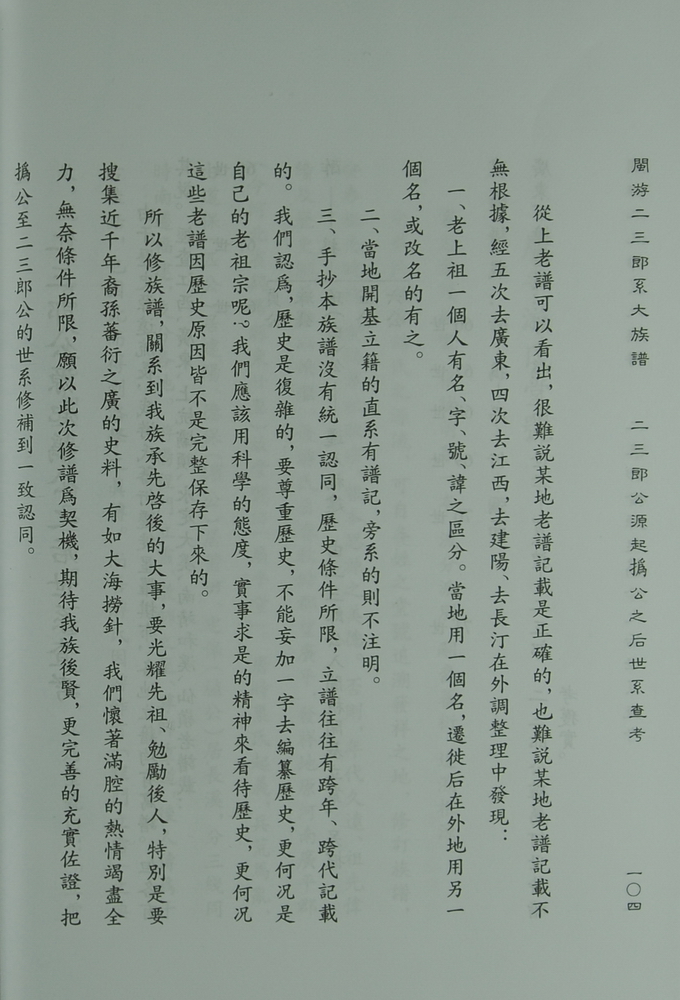 閩游二三郎系大族譜　二三郎公源起撝公之后世系查考　一〇四
從上老譜可以看出，很難説某地老譜記載是正確的，也難説某地老譜記載不
無根據，經五次去廣東，四次去江西，去建陽、去長汀在外調整理中發現：
一、老上祖一個人有名、字、號、諱之區分。當地用一個名，遷徙后在外地用另一
個名，或改名的有之。
二、當地開基立籍的直系有譜記，旁系的則不注明。
三、手抄本族譜沒有統一認同，歷史條件所限，立譜往往有跨年、跨代記載
的。我們認爲，歷史是復雜的，要尊重歷史，不能妄加一字去編纂歷史，更何况是
自己的老祖宗呢？我們應該用科學的態度，實事求是的精神來看待歷史，更何况
這些老譜因歷史原因皆不是完整保存下來的。
所以修族譜，關系到我族承先啓後的大事，要光耀先祖、勉勵後人，特別是要
搜集近千年裔孫蕃衍之廣的史料，有如大海撈針，我們懷著滿腔的熱情竭盡全
力，無奈條件所限，願以此次修譜爲契機，期待我族後賢，更完善的充實佐證，把
撝公至二三郎公的世系修補到一致認同。